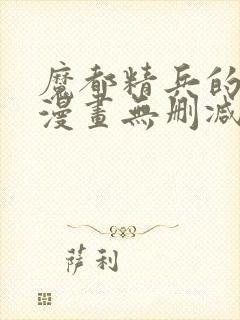 魔都精兵的
漫畫無刪减
萨利